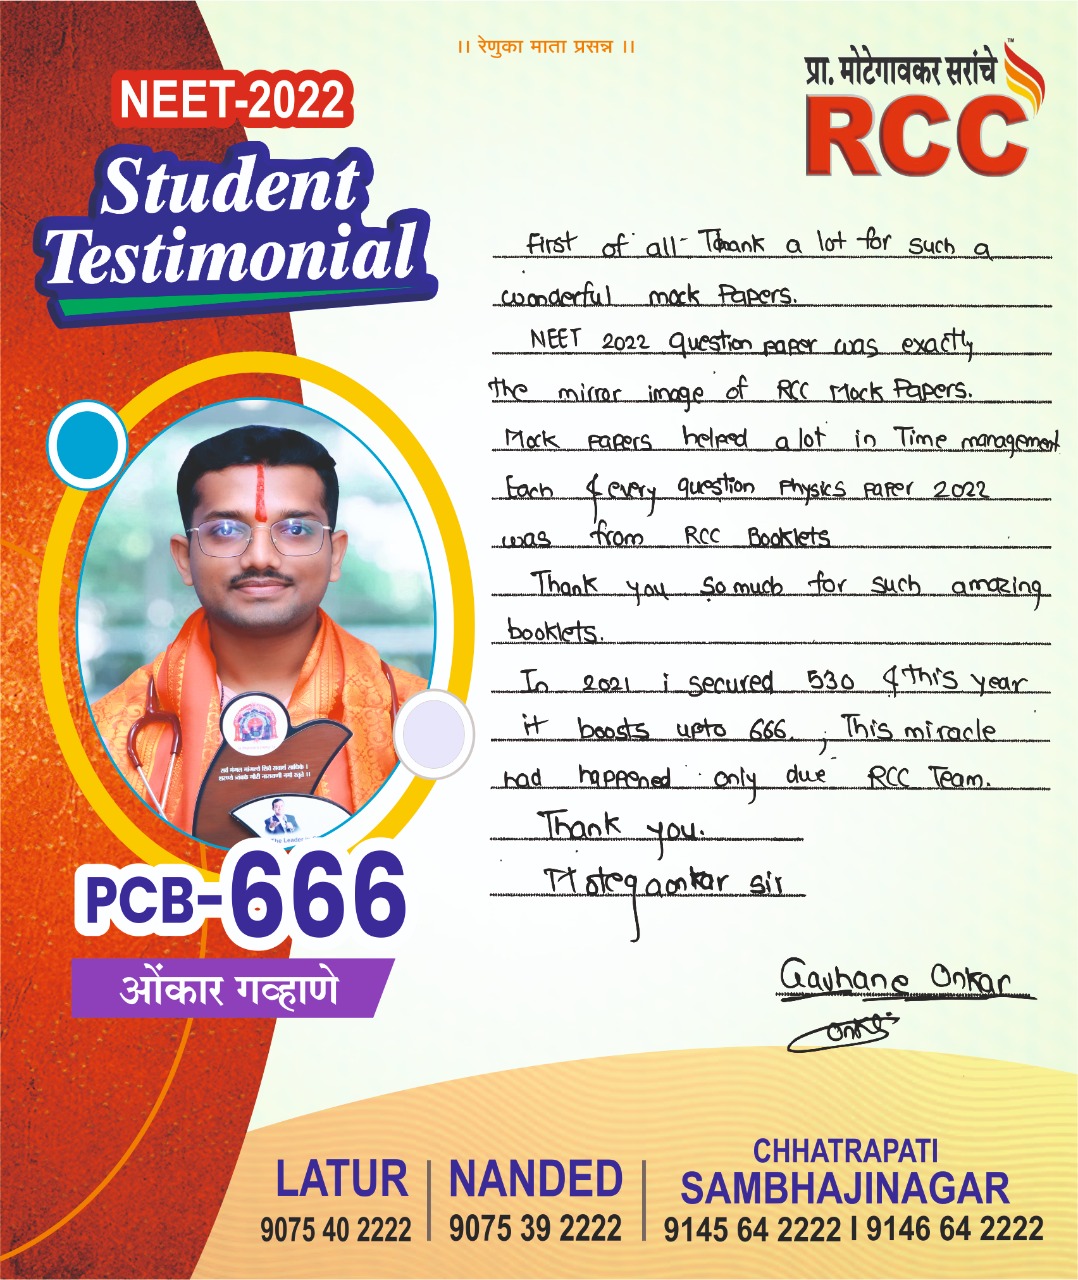 ।। रेणुका माता प्रसन्न ।।
प्रा. मोटेगावकर सरांचे
TM
RCC
NEET-2022
Student
Testimonial
First of all Thank a lot for such a
wonderful mock Papers.
NEET 2022 question paper was exactly
the mirror image of RCC Mock Papers.
Mock papers helped a lot in Time management
Each & every question Physics paper 2022
was from RCC Booklets
Thank you so much for such amazing
booklets.
In 2021 i secured 530 & this year
it boosts upto 666. , This miracle
had happened only due RCC Team.
Thank you.
Motegaonkar sir
Gavhane Onkar
Onkar
सर्व मंगल मांगल्ये शिवे सर्वार्थ साधिके ।
शरण्ये त्र्यंबके गौरी नारायणी नमो स्तुते ।।
The Leader
PCB-666
ओंकार गव्हाणे
LATUR
9075 40 2222
NANDED
9075 39 2222
CHHATRAPATI
SAMBHAJINAGAR
9145 64 2222 I 9146 64 2222